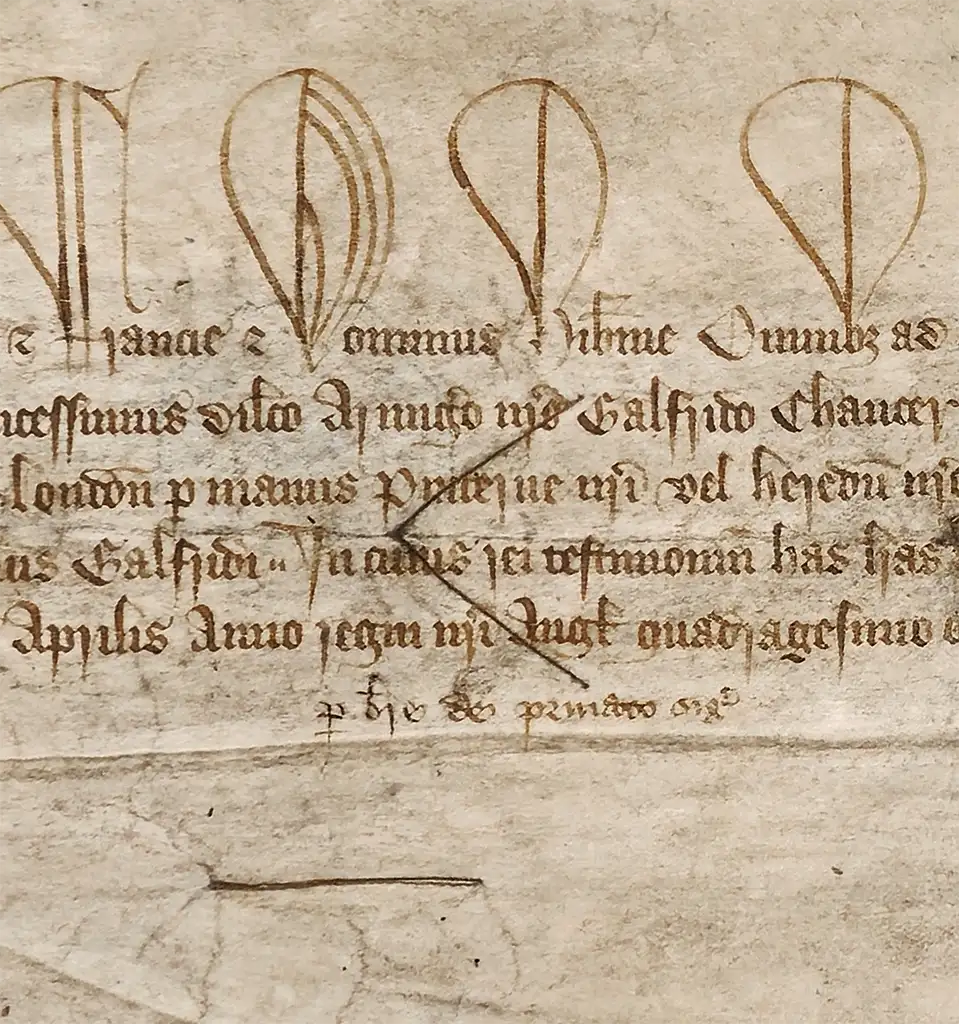 ⁊ Francie ⁊ Dominus Hib̅nie Omnibꝫ ad
ncessimus dilc̅o Armigo̅ nr̅o Galfrido Chaucer
London̅ ꝑ manus Pincerne nr̅i vel heredu̅ nr̅o
us Galfridi In cuius rei testimoniu̅ has lr̅as
Aprilis Anno regni nr̅i Angl̅ quadragesimo
ꝑ br̅e de priuato sig